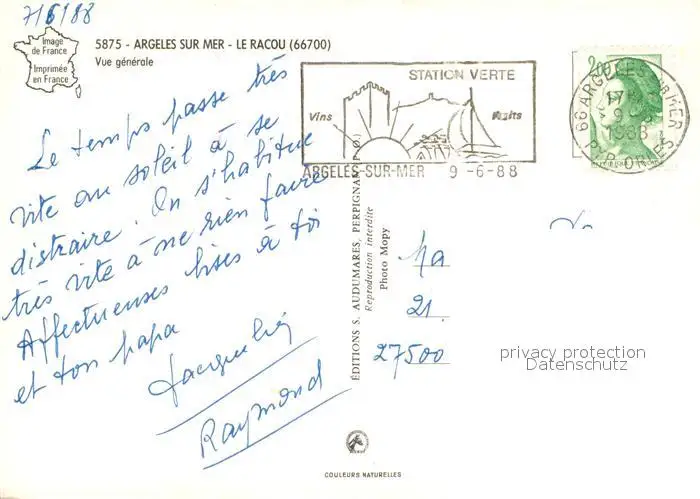 7/6/88
Image
de France
Imprimée
en France
5875 - ARGELES SUR MER - LE RACOU (66700)
Vue générale
Le temps passe très
vite au soleil à se
distraire. On s'habitue
très vite à ne rien faire
Affectueuses bises à toi
et ton papa
Jacqueline
Raymond
STATION VERTE
Vins
Fruits
ARGELES-SUR-MER 9-6-88
2,00
66 ARGELES SUR MER
17H
9-6
1988
P.P. ORLES
ÉDITIONS S. AUDUMARES, PERPIGNAN (P.O.)
Reproduction interdite
Photo Mopy
Ma
21
27500
privacy protection
Datenschutz
COULEURS NATURELLES